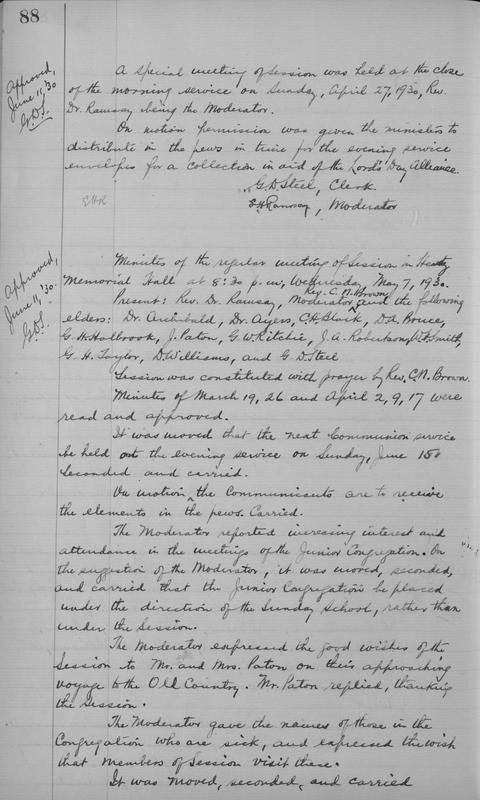 88
Approved,
June 11, '30
G.D.S.
A special meeting of Session was held at the close
of the morning service on Sunday, April 27, 1930, Rev.
Dr. Ramsay being the Moderator.
On motion permission was given the ministers to
distribute in the pews in time for the evening service
envelopes for a collection in aid of the Lord's Day Alliance.
G.D. Steel, Clerk.
Moderator
Approved,
June 11, '30.
G.D.S.
Minutes of the regular meeting of Session in
Memorial Hall at 8:30 p.m., Wednesday, May 7, 1930.
Rev. C. N. Brown
Present: Rev. Dr. Ramsay, Moderator, and the following
elders: Dr. Archibald, Dr. Ayers, C.H. Black, D.A. Bruce,
G. H. Holbrook, J. Paton, G. W. Ritchie, J. A. Robertson, Smith,
G. H. Taylor, D. Williams, and G. D. Steel.
Session was constituted with prayer by Rev. C. N. Brown.
Minutes of March 19, 26 and April 2, 9, 17 were
read and approved.
It was moved that the next Communion service
be held at the evening service on Sunday, June 15.
Seconded and carried.
On motion, the Communicants are to receive
the elements in the pews. Carried.
The Moderator reported increasing interest and
attendance in the meetings of the Junior Congregation. On
the suggestion of the Moderator, it was moved, seconded,
and carried that the Junior Congregation be placed
under the direction of the Sunday School, rather than
under the Session.
The Moderator expressed the good wishes of the
Session to Mr. and Mrs. Paton on their approaching
voyage to the Old Country. Mr. Paton replied, thanking
the Session.
The Moderator gave the names of those in the
Congregation who are sick, and expressed the wish
that members of Session visit these.
It was moved, seconded, and carried